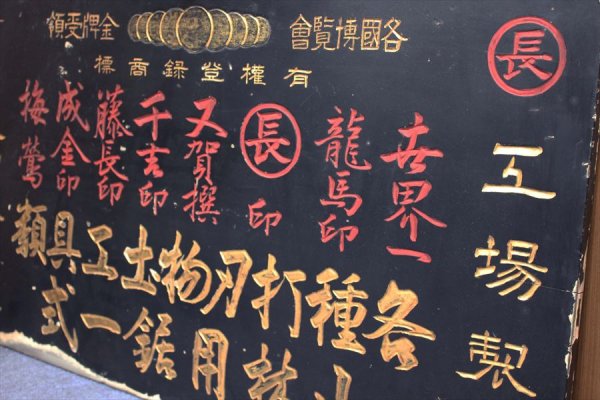 長
工場製
各國博覽會
金牌受領
有權登録商標
世界一
龍馬印
長印
又賀撰
千吉印
藤長印
成金印
梅鶯
各種打刃物土工具類
用鋸一式